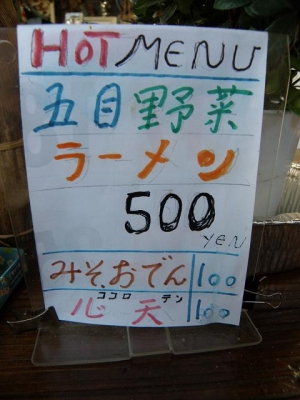 HOT MENU
五目野菜
ラーメン
500
YEN
みそ、おでん 100
ココロ テン
心天 100